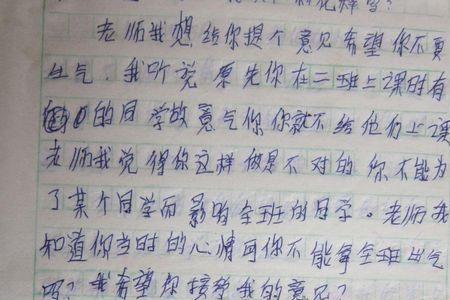 老师我想给你提个意见希望你不要
生气。我听说原先你在二班上课时有
的同学故意气你你就不给他们上课
老师我觉得你这样做是不对的你不能为
了某个同学而影响全班的同学。老师我
知道你当时的心情可你不能拿全班出气
吗?我希望你接受我的意见?